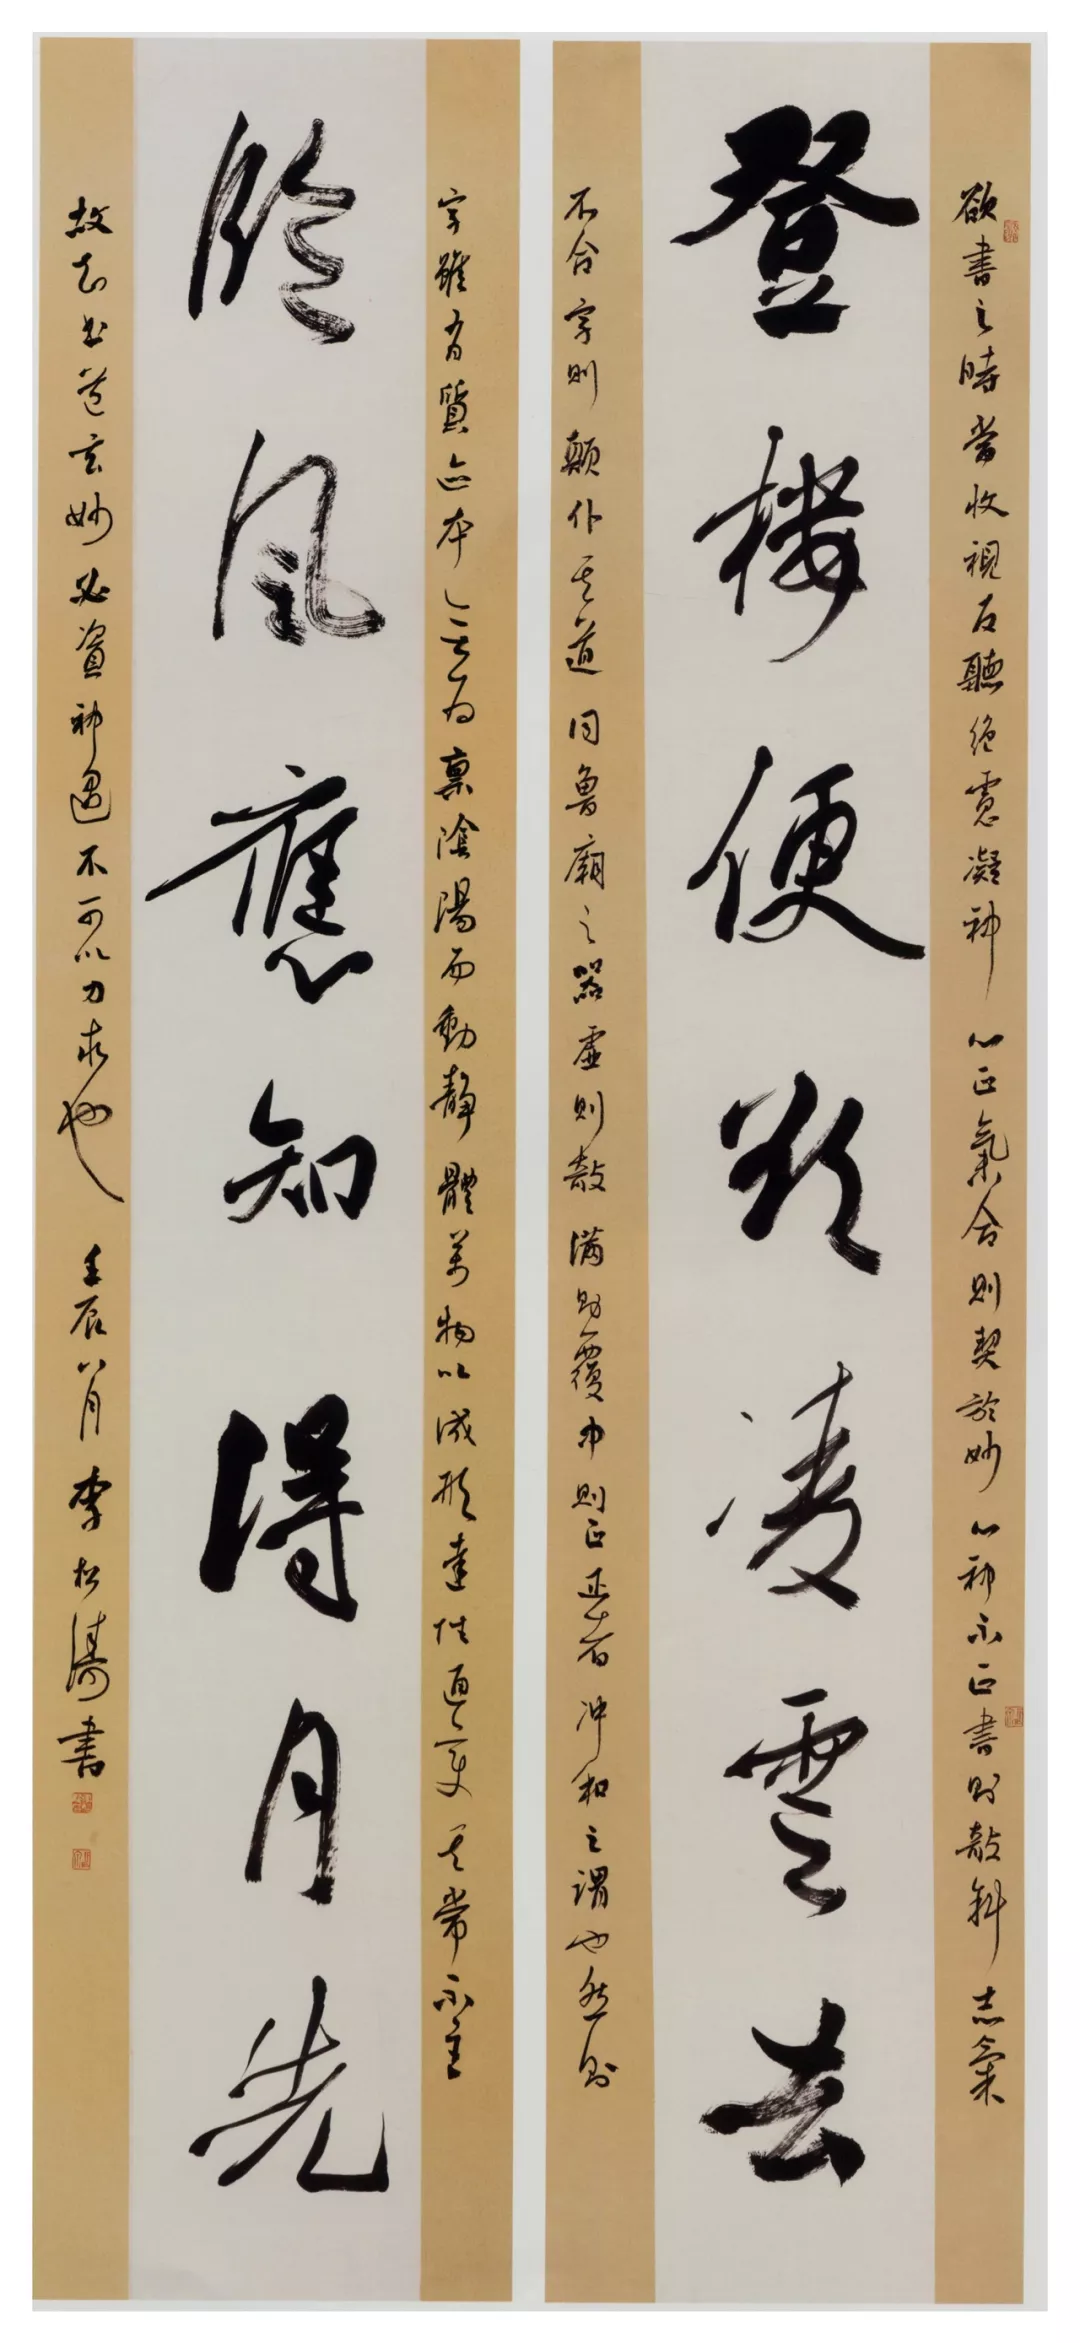 欲書之時當收視反聽絕慮凝神心正氣合則契於妙心神不正書則敧斜志氣
登樓便欲凌雲去
不合字則顛仆其道同魯廟之器虛則敧滿則覆中則正正者沖和之謂也然則
字雖有質迹本無為稟陰陽而動靜體萬物以成形達性通變其常不主
臨風應知得月先
故知書道玄妙必資神遇不可以力求也 壬辰八月 李松濤書